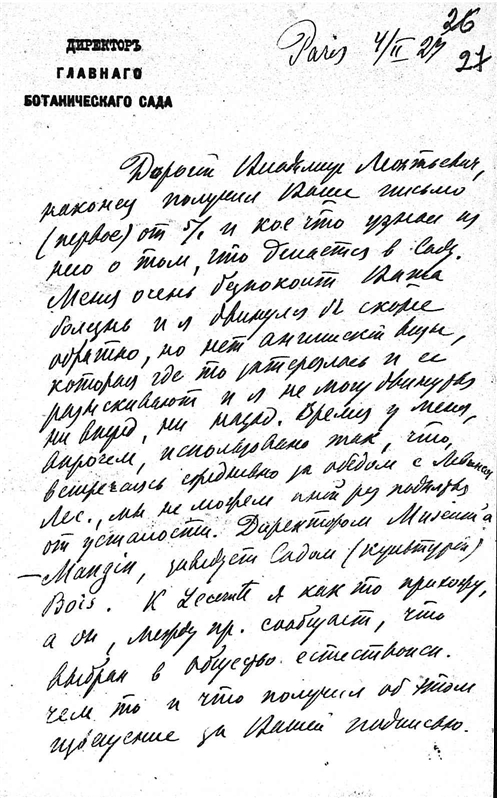 26
ДИРЕКТОРЪ
ГЛАВНАГО
БОТАНИЧЕСКАГО САДА
Paris 4/II 27
27
Дорогой Владимир Леонтьевич,
наконец получил Ваше письмо
(первое) от 5/I и кое что узнал из
него о том, что делается в Саду.
Меня очень беспокоит Ваша
болезнь и я двинулся бы скорее
обратно, но нет английской визы,
которая где то затерялась и ее
разыскивают и я не могу двинуться
ни вперед, ни назад. Время у меня,
впрочем, использовано так, что,
встречаясь ежедневно за обедом с
Лес., мы не можем от усталости. Директором Muséum'a
— Mangin, заведует Садом (культурой)
Bois. К Lecomte я как то прихожу,
а он, между пр. сообщает, что
выбран в общество естествоисп.
чем то и что получил об этом
извещение за Вашей подписью.